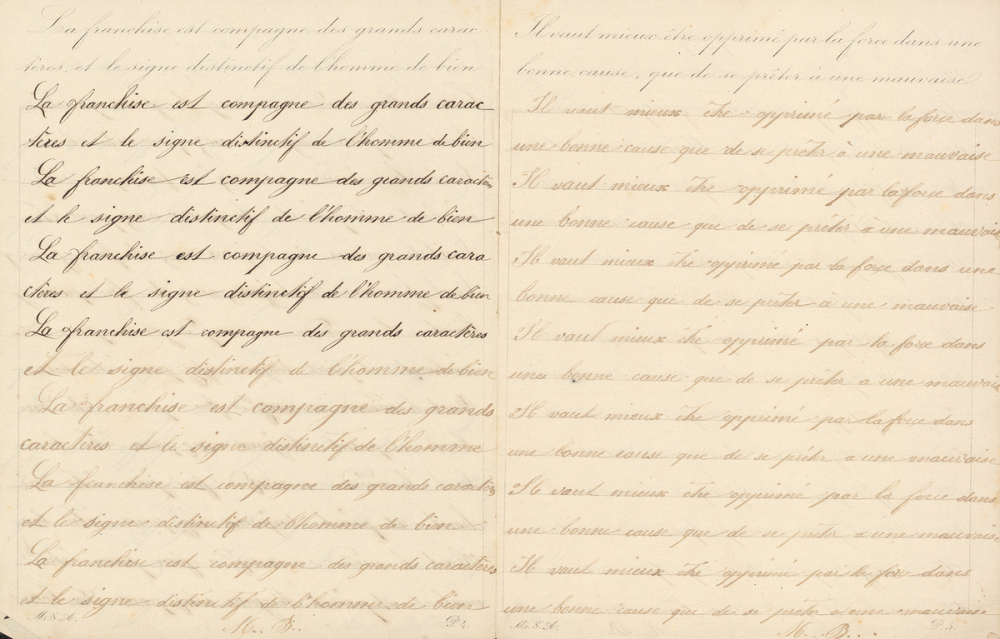 La franchise est compagne des grands carac
tères, et le signe distinctif de l'homme de bien
La franchise est compagne des grands carac
tères et le signe distinctif de l'homme de bien
La franchise est compagne des grands caractères
et le signe distinctif de l'homme de bien
La franchise est compagne des grands cara
ctères et le signe distinctif de l'homme de bien
La franchise est compagne des grands caractères
et le signe distinctif de l'homme de bien
La franchise est compagne des grands
caractères et le signe distinctif de l'homme
La franchise est compagnee des grands caractères
et le signe distinctif de l'homme de bien
La franchise est compagne des grands caractères
et le signe distinctif de l'homme de bien
M.&A.
M.. B..
Il vaut mieux être opprimé par la force dans une
bonne cause, que de se prêter à une mauvaise
Il vaut mieux être opprimé par la force dans
une bonne cause que de se prêter à une mauvaise
Il vaut mieux être opprimé par la force dans
une bonne cause que de se prêter à une mauvaise
Il vaut mieux être opprimé par la force dans une
bonne cause que de se prêter à une mauvaise
Il vaut mieux être opprimé par la force dans
une bonne cause que de se prêter a une mauvais
Il vaut mieux être opprimé par la force dans
une bonne cause que de se prêter a une mauvaise
Il vaut mieux être opprimé par la force dans
une bonne cause que de se prêter a une mauvaise
Il vaut mieux être opprimé par la force dans
une bonne cause que de se prêter a une mauvaise
M.&A.
M.. B..